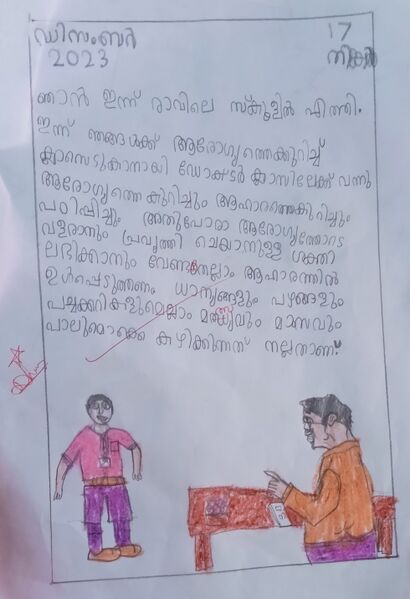 ഡിസംബർ 17
2023
ഞാൻ ഇന്ന് രാവിലെ സ്കൂളിൽ എത്തി.
ഇന്ന് ഞങ്ങൾക്ക് ആരോഗ്യത്തെക്കുറിച്ച്
ക്ലാസെടുകാനായി ഡോക്ടർ ക്ലാസിലേക്ക് വന്നു
ആരോഗ്യത്തെ കുറിച്ചും ആഹാരത്തെകുറിച്ചും
പഠിപ്പിച്ചും അതുപോരാ ആരോഗ്യത്തോടെ
വളരാനും പ്രവൃത്തി ചെയാനുള്ള ശക്തി
ലഭിക്കാനും വേണ്ടതെല്ലാം ആഹാരത്തിൽ
ഉൾപ്പെടുത്തണം ധാന്യങ്ങളും പഴങ്ങളും
പച്ചക്കറികളുമെല്ലാം മത്സ്യവും മാംസവും
പാലുമൊക്കെ കഴിക്കുന്നത് നല്ലതാണ്.